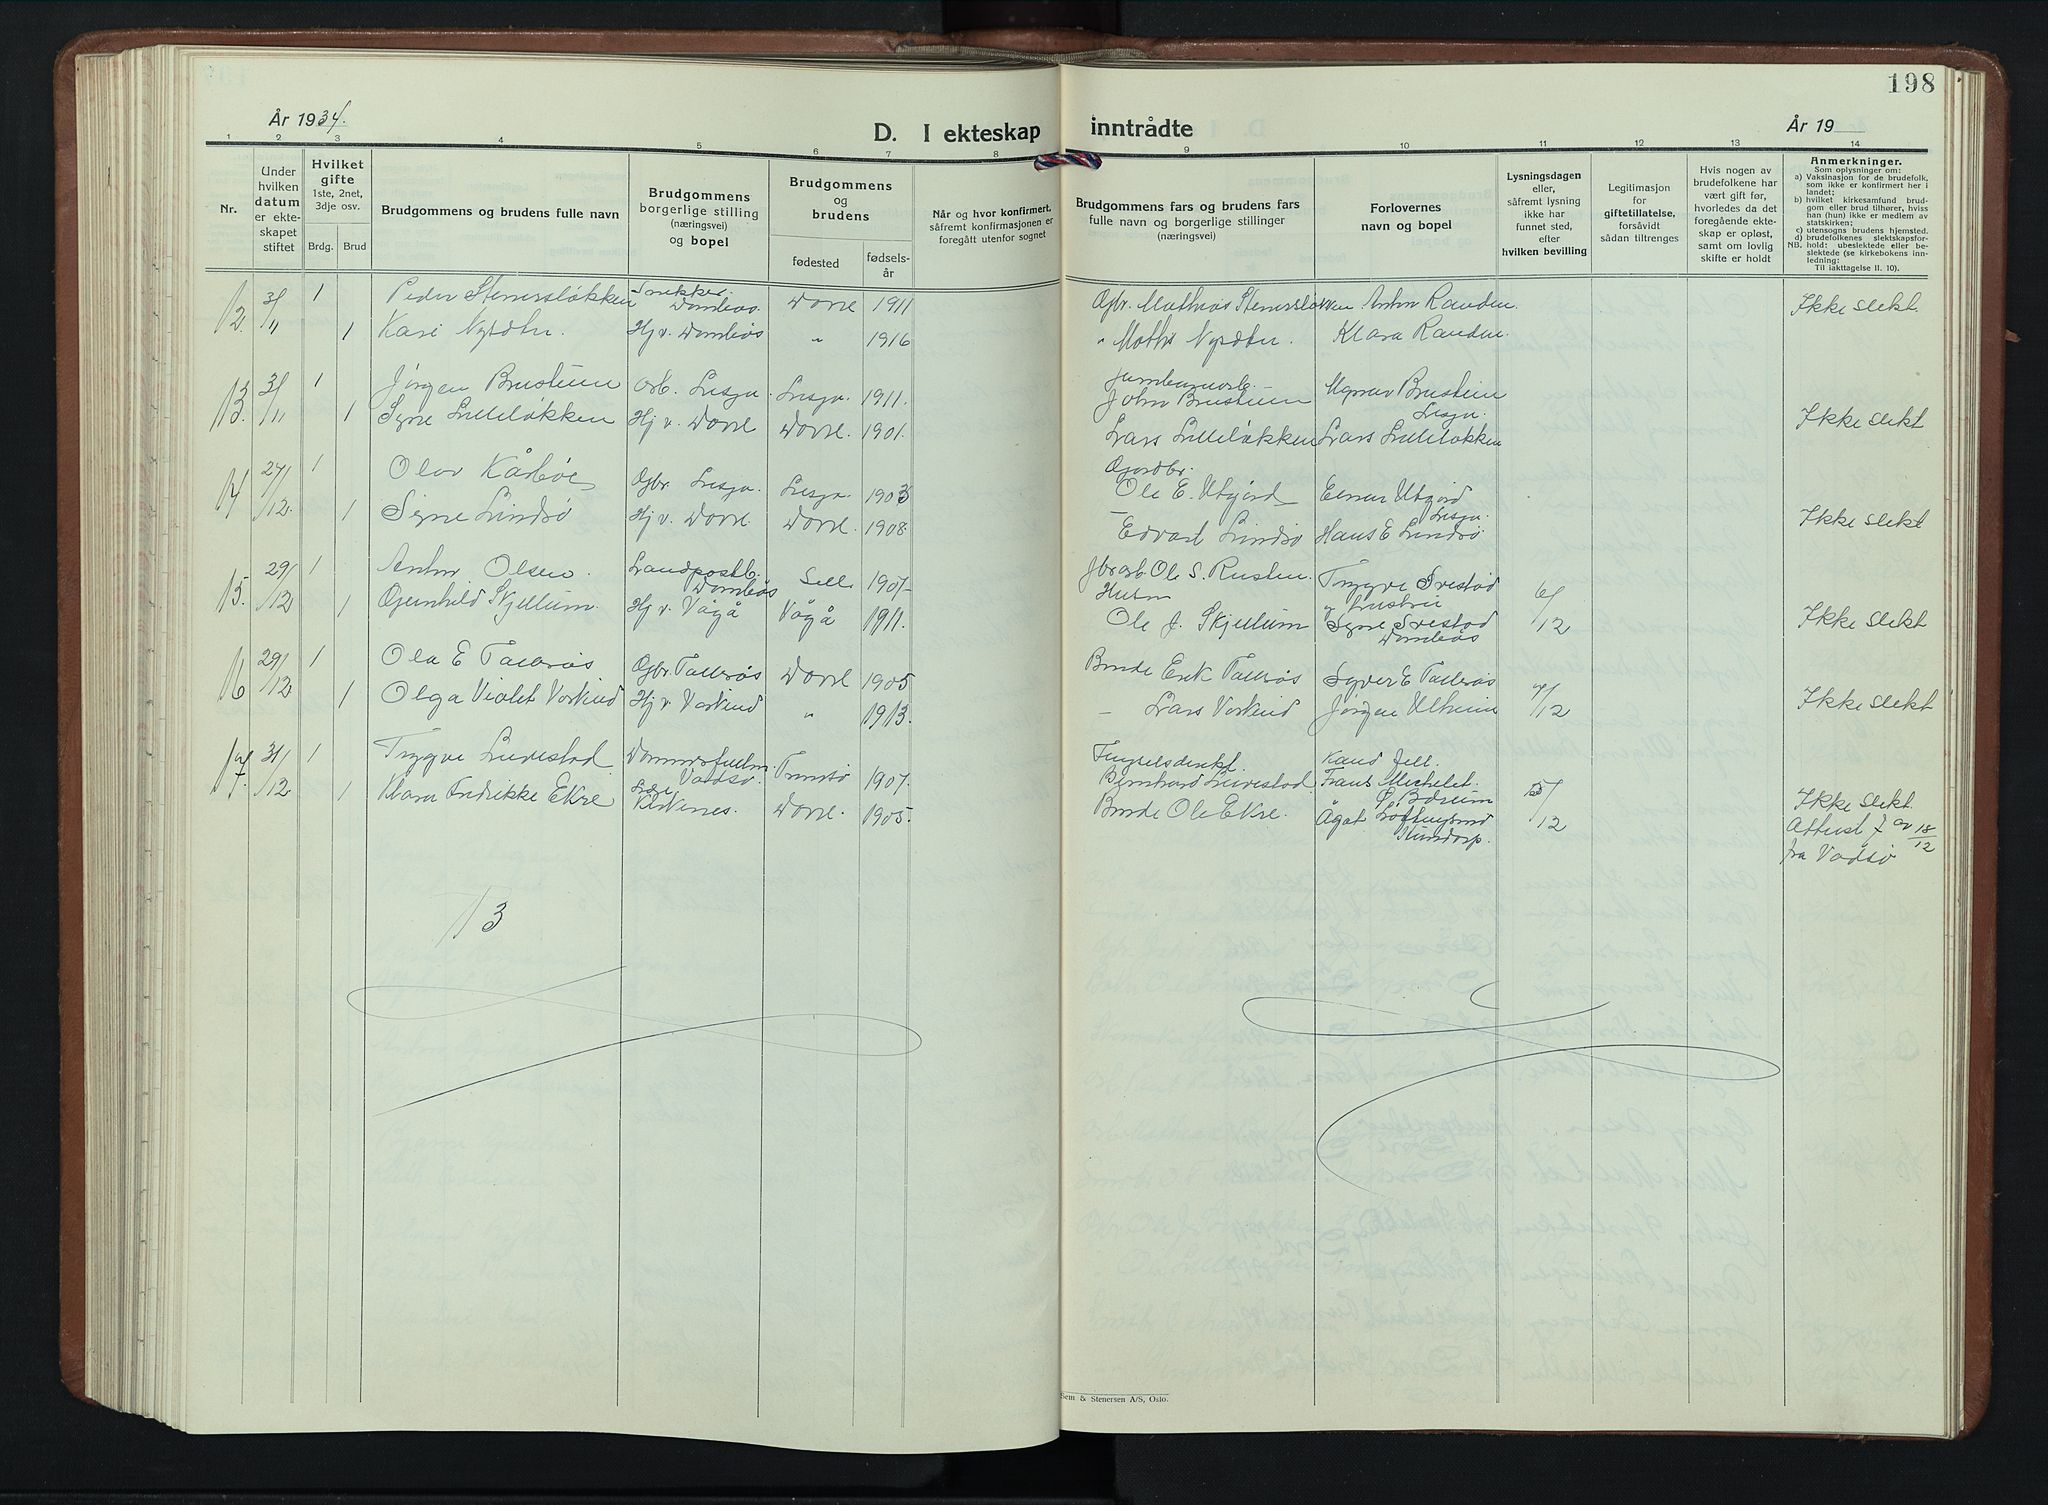 198
År 1934.
D. I ekteskap inntrådte
År 19
1 2 3 4 5 6 7 8 9 10 11 12 13 14
Nr.
Under hvilken datum er ekteskapet stiftet
Hvilket gifte
1ste, 2net, 3dje osv.
Brdg. Brud
Brudgommens og brudens fulle navn
Brudgommens borgerlige stilling (næringsvei) og bopel
Brudgommens og brudens
fødested
fødselsår
Når og hvor konfirmert, såfremt konfirmasjonen er foregått utenfor sognet
Brudgommens fars og brudens fars fulle navn og borgerlige stillinger (næringsvei)
Forlovernes navn og bopel
Lysningsdagen eller, såfremt lysning ikke har funnet sted, efter hvilken bevilling
Legitimasjon for giftetillatelse, forsåvidt sådan tiltrenges
Hvis nogen av brudefolkene har vært gift før, hvorledes da det foregående ekteskap er opløst, samt om lovlig skifte er holdt
Anmerkninger.
Som oplysninger om:
a) Vaksinasjon for de brudefolk, som ikke er konfirmert her i landet;
b) hvilket kirkesamfund brudgom eller brud tilhører, hviss han (hun) ikke er medlem av statskirken;
c) utensogns brudens hjemsted.
d) brudefolkenes slektskapsforhold: ubeslektede eller beslektede (se kirkebokens innledning:
NB.
Til iakttagelse II. 10).
12 3/11 1 Peder Stenersløkken Snekker Dombås Dovre 1911 Gbr. Mathias Stenersløkken Anton Randen Ikke slekt
1 Kari Nysætr. Hj v. Dombås " 1916 " Mathis Nysætr. Klara Randen.
13. 3/11 1 Jørgen Brusteen Arb. Lesja. Lesja. 1911. John Brusteen Brusteen Lesja. Ikke slekt
1 Signe Lilleløkken Hj v. Dovre Dovre. 1901. Lars Lilleløkken Lars Lilleløkken
14 27/12. 1 Olav Kårbøe Gbr. Lesja. Lesja. 1903 Gårdbr. Ole E. Utgård Einar Utgård Lesja.
1 Signe Lindsø Hj v. Dovre. Dovre. 1908. Edvart Lindsø Hans E Lindsø Ikke slekt
15. 29/12 1 Anton Olsen. Landpostb. Dombås Sell 1907 Ole S. Rusten. Trygve
1 Gunhild Skjellum. Hj v. Vågå Vågå 1911. Ole J. Skjellum Signe Dombås 6/12 Ikke slekt
16 29/12 1 Ola E Tallerås Gbr. Tallerås Dovre 1905 Bonde Erik Tallerås Syver E Tallerås
1 Olga Violet Vorkind Hj v Vorkind " 1913. Lars Vorkind Jørgen Ulheim 7/12 Ikke slekt
17. 31/12 1 Trygve Liverstad. Dommerfullm. Vadsø. Tromsø 1907. Fengselsdirekt. Bernhard Liverstad. Kand Jell. Frans Michelet. Bærum
1 Klara Fredrikke Ekre Kirkenes. Dovre. 1905. Bonde Ole Ekre. Ågot Loftsgård Hundorp. 5/12 Ikke slekt.
Attest 7 av 18/12 fra Vadsø
13
Sem & Stenersen A/S, Oslo.